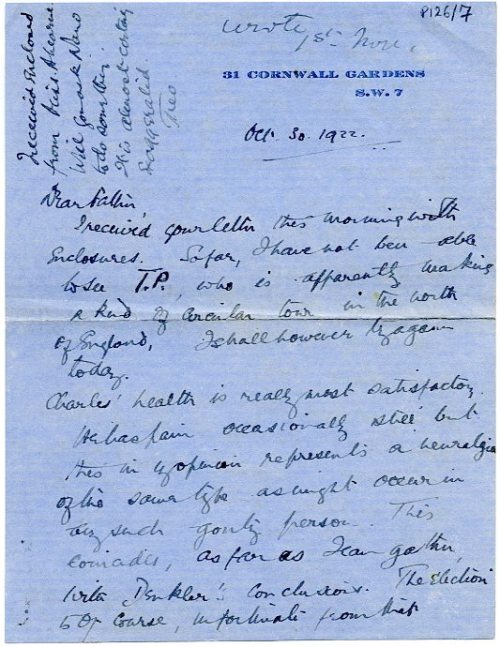 P126/7
wrote
1st Nov.
31 CORNWALL GARDENS
S.W. 7
Oct. 30. 1922.
I received enclosed
from Miss Ahearne
Will you ask Nano
to do something.
It is almost certainly
exaggerated.
Theo
Dear Father
I received your letter this morning with the
Enclosures. So far, I have not been able
to see T.P., who is apparently making
a kind of circular tour in the north
of England, I shall however try again
today.
Charles' health is really most satisfactory.
He has pain occasionally still but
this in my opinion represents a neuralgia
of the same type as might occur in
any such gouty person. This
coincides, as far as I can gather,
with Denkler's conclusions. The Election
is of course, unfortunate from that